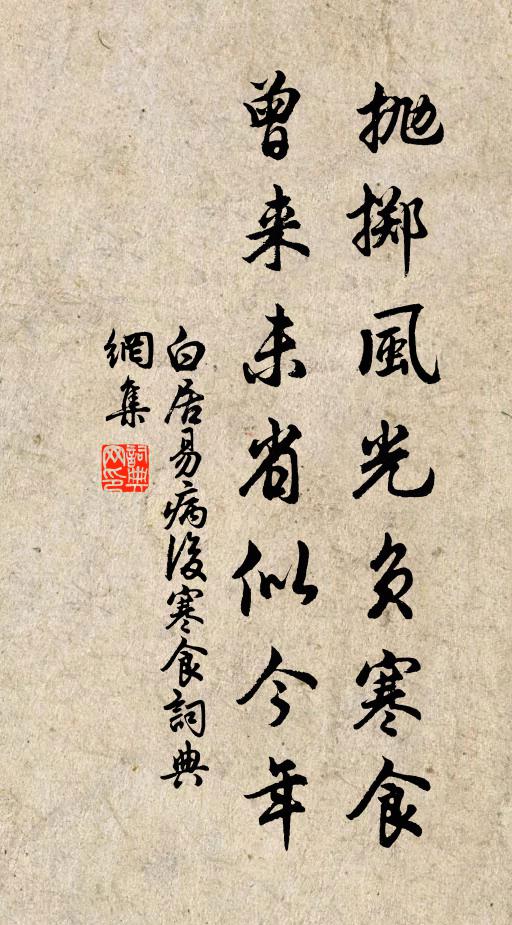 抛掷風光負寒食
曾来未省似今年
白居易病後寒食詞典
網集
詞典
网印